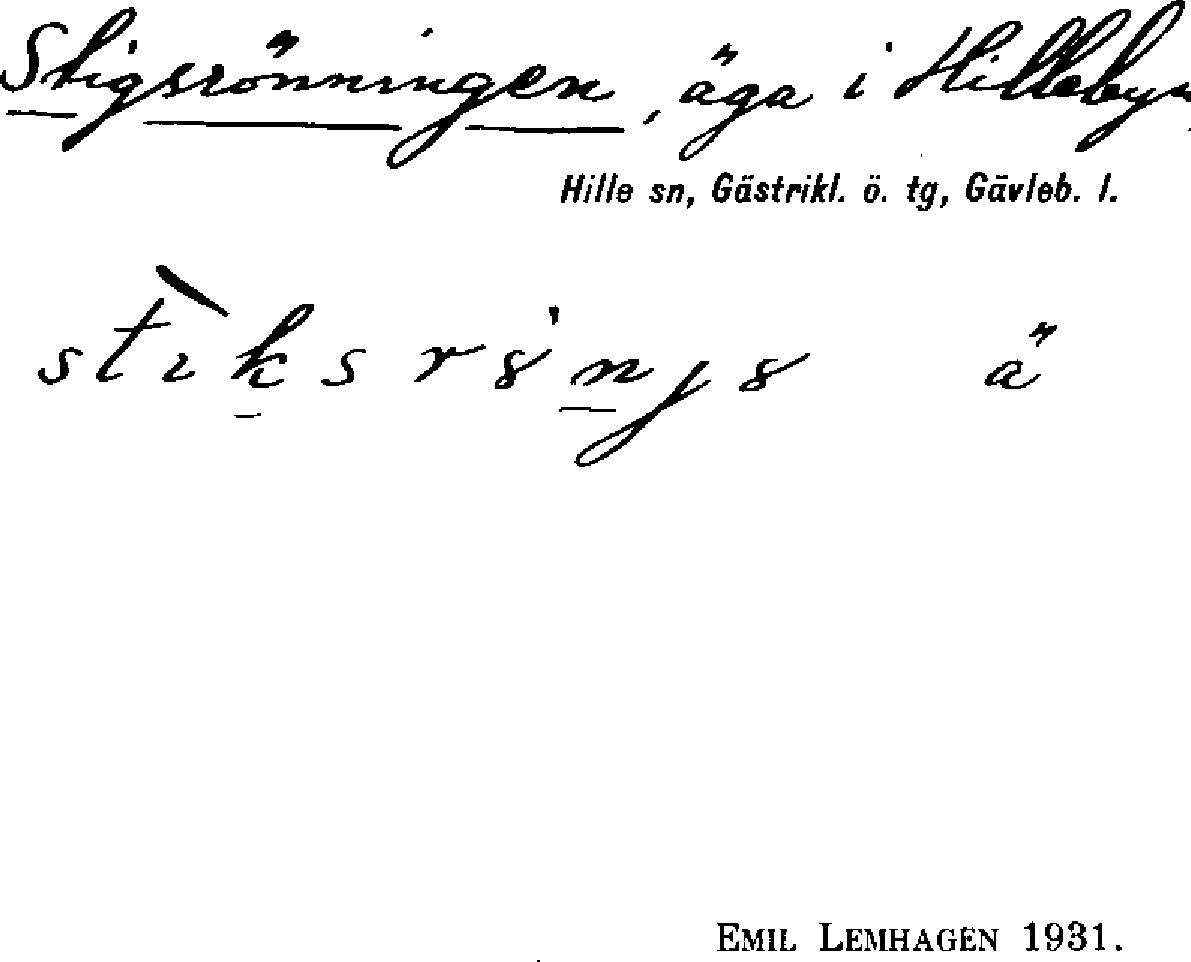 Stigsrönningen, äga i Hillebyn
Hille sn, Gästrikl. ö. tg, Gävleb. l.
ä
EMIL LEMHAGEN 1931.